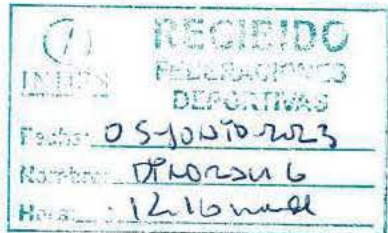 RECIBIDO
INDES
FEDERACIONES
DEPORTIVAS
Fecha: 05-JUNIO-2023
Nombre:
Hora: 12:16